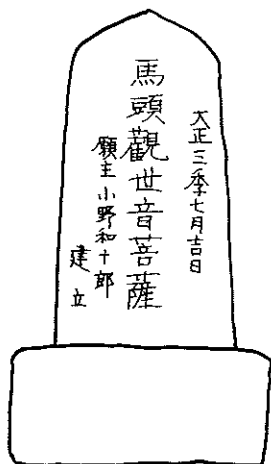 大正三季七月吉日
馬頭觀世音菩薩
願主小野和十郎
建立